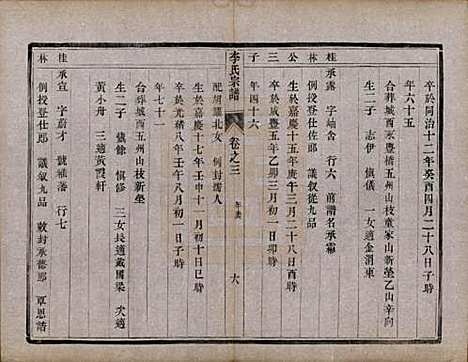 卒於同治十二年癸酉四月二十八日子時
年六十五
合葬城西永豐橋五州山枝童家山新塋乙山辛向
生二子 志伊 慎儀 一女適金渭東
桂 承露 字岫含 行六 前譜名承霜
林 例授登仕佐郎 議叙從九品
公 生於嘉慶十五年庚午三月二十八日酉時
三 卒於咸豐五年乙卯三月初一日亥時
子 年四十六
李氏宗譜 卷之三 年表 六
配胡龍北女 例封孺人
生於嘉慶十七年壬申十一月初十日巳時
卒於光緒八年壬午八月初一日子時
年七十一
合葬城西五州山枝新塋
生二子 慎餘 慎修 三女長適戴國梁 次適
黃小舟 三適黃霞軒
桂 承宣 字蔚才 號雅藩 行七
林 例授登仕郎 議叙六品 敕封承德郎 覃恩誥